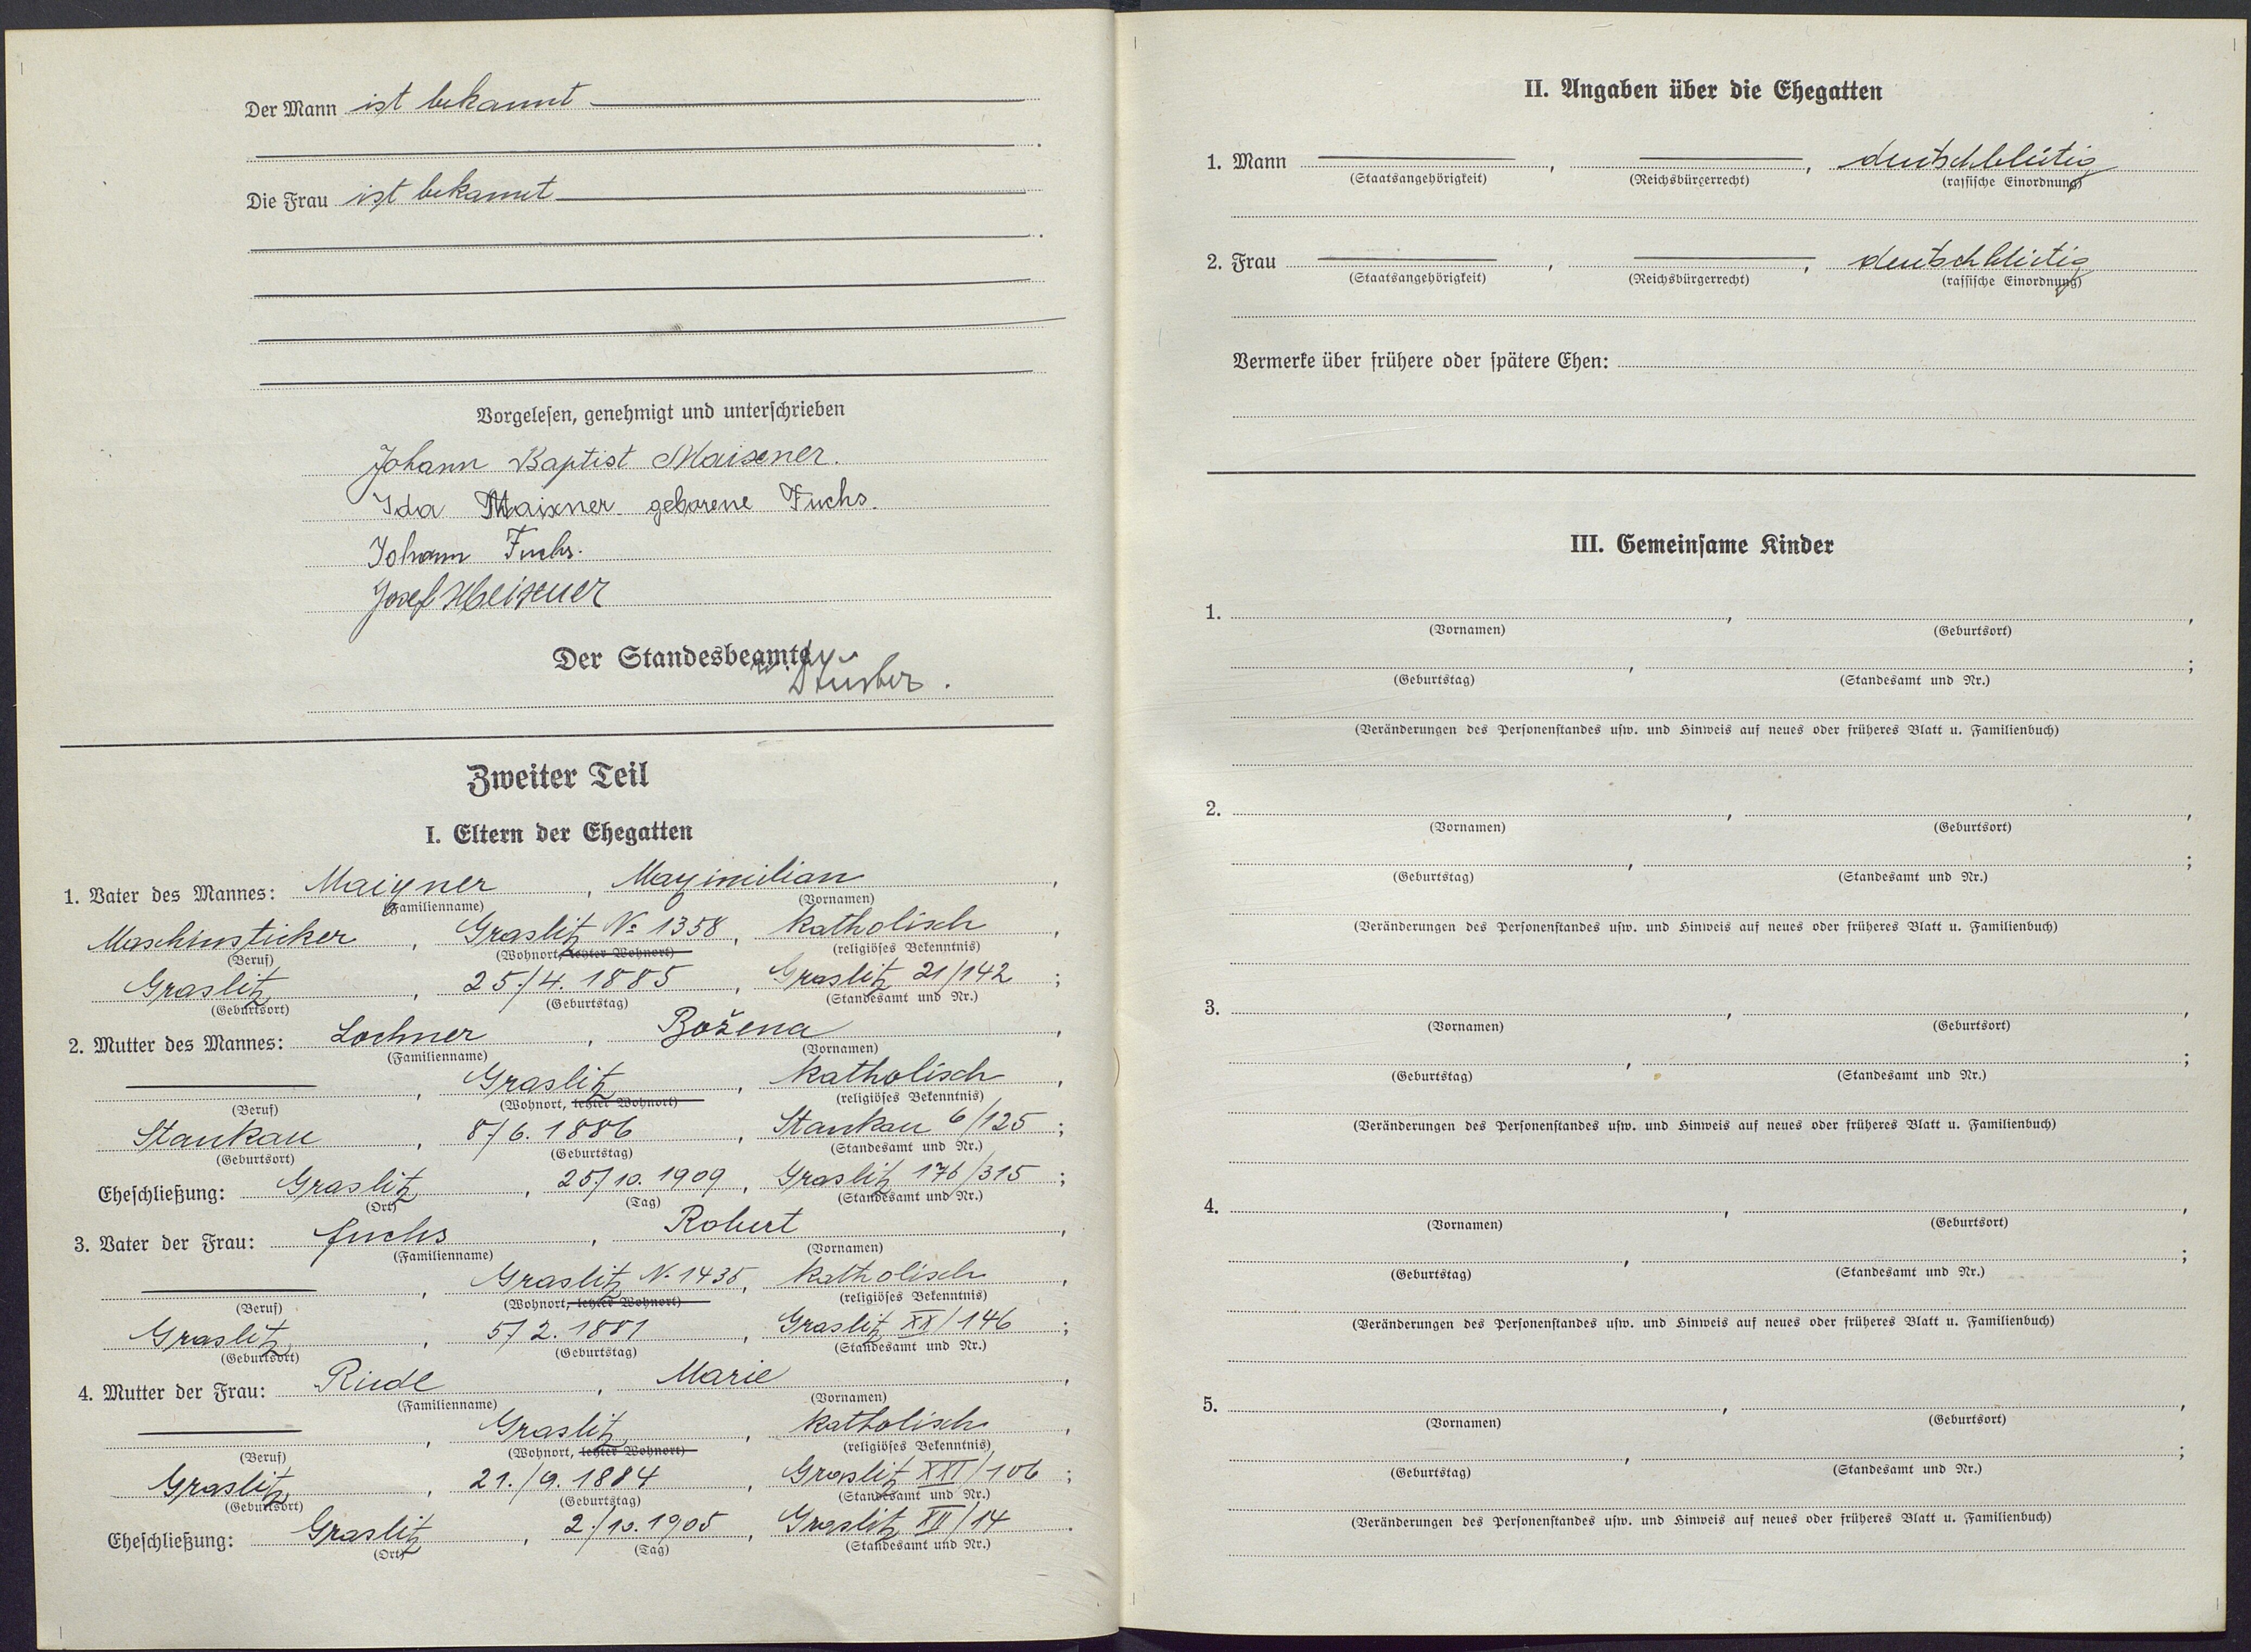 Der Mann ist bekannt
Die Frau ist bekannt
Vorgelesen, genehmigt und unterschrieben
Johann Baptist Maixner.
Ida Maixner geborene Fuchs.
Johann Fuchs.
Josef Meixner
Der Standesbeamte
Zweiter Teil
I. Eltern der Ehegatten
1. Vater des Mannes: Maixner, Maximilian,
(Familienname) (Vornamen)
Maschinsticker, Graslitz № 1358, katholisch,
(Beruf) (Wohnort, letzter Wohnort) (religiöses Bekenntnis)
Graslitz, 25./4. 1885, Graslitz 21/142;
(Geburtsort) (Geburtstag) (Standesamt und Nr.)
2. Mutter des Mannes: Lochner, Božena,
(Familienname) (Vornamen)
, Graslitz, katholisch,
(Beruf) (Wohnort, letzter Wohnort) (religiöses Bekenntnis)
Stankau, 8/6. 1886, Stankau 6/125;
(Geburtsort) (Geburtstag) (Standesamt und Nr.)
Eheschließung: Graslitz, 25/10. 1909, Graslitz 176/315;
(Ort) (Tag) (Standesamt und Nr.)
3. Vater der Frau: Fuchs, Robert,
(Familienname) (Vornamen)
, Graslitz N. 1435, katholisch,
(Beruf) (Wohnort, letzter Wohnort) (religiöses Bekenntnis)
Graslitz, 5/2. 1881, Graslitz XX/146;
(Geburtsort) (Geburtstag) (Standesamt und Nr.)
4. Mutter der Frau: Riedl, Marie,
(Familienname) (Vornamen)
, Graslitz, katholisch,
(Beruf) (Wohnort, letzter Wohnort) (religiöses Bekenntnis)
Graslitz, 21./9. 1884, Graslitz
(Geburtsort) (Geburtstag) (Standesamt und Nr.)
Eheschließung: Graslitz, 2./10. 1905, Graslitz
(Ort) (Tag) (Standesamt und Nr.)
II. Angaben über die Ehegatten
1. Mann , , deutschblütig
(Staatsangehörigkeit) (Reichsbürgerrecht) (rassische Einordnung)
2. Frau , , deutschblütig
(Staatsangehörigkeit) (Reichsbürgerrecht) (rassische Einordnung)
Vermerke über frühere oder spätere Ehen:
III. Gemeinsame Kinder
1. , ,
(Vornamen) (Geburtsort)
, ;
(Geburtstag) (Standesamt und Nr.)
(Veränderungen des Personenstandes usw. und Hinweis auf neues oder früheres Blatt u. Familienbuch)
2. , ,
(Vornamen) (Geburtsort)
, ;
(Geburtstag) (Standesamt und Nr.)
(Veränderungen des Personenstandes usw. und Hinweis auf neues oder früheres Blatt u. Familienbuch)
3. , ,
(Vornamen) (Geburtsort)
, ;
(Geburtstag) (Standesamt und Nr.)
(Veränderungen des Personenstandes usw. und Hinweis auf neues oder früheres Blatt u. Familienbuch)
4. , ,
(Vornamen) (Geburtsort)
, ;
(Geburtstag) (Standesamt und Nr.)
(Veränderungen des Personenstandes usw. und Hinweis auf neues oder früheres Blatt u. Familienbuch)
5. , ,
(Vornamen) (Geburtsort)
, ;
(Geburtstag) (Standesamt und Nr.)
(Veränderungen des Personenstandes usw. und Hinweis auf neues oder früheres Blatt u. Familienbuch)